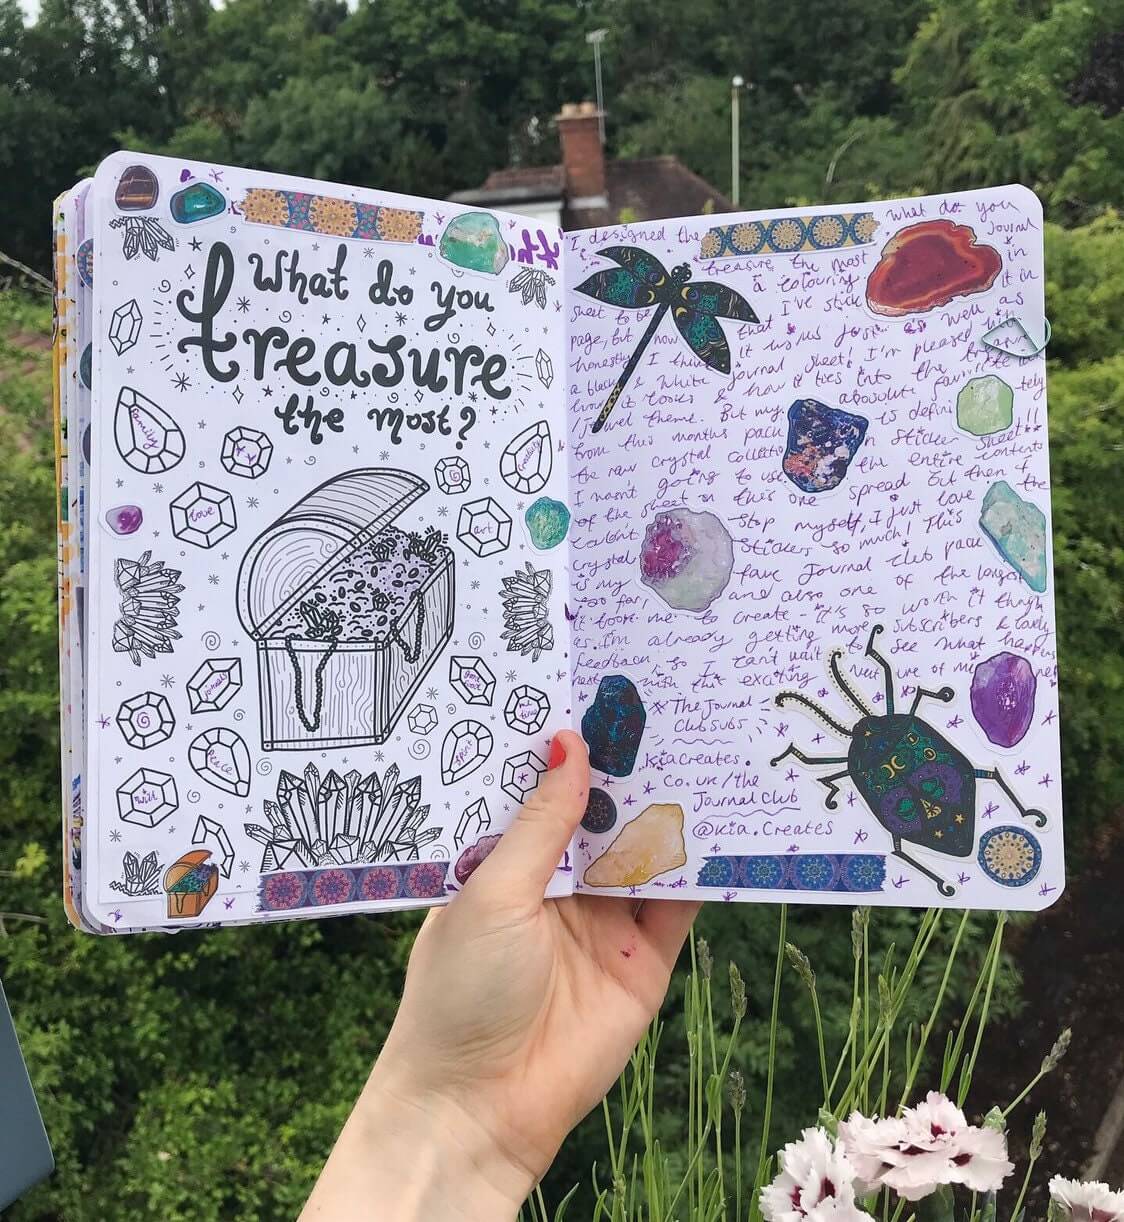 What do you
treasure
the most?
family
Creativity
love
art
journals
don't quit
me time
Peace
spire
Faith
What do you
I designed the
journal
treasure the most
in
sheet to be
a colouring
it in
page, but now
that I've stuck
as
honestly I think
it works just as well
a black & white journal sheet! I'm pleased with
how it looks & how it ties into the
/Jewel theme. But my absolute favourite
from this months pack is definitely
the raw crystal collection sticker sheet!!
I wasn't going to use the entire contents
of the sheet on this one spread but then I
couldn't stop myself, I just love the
crystal stickers so much! This
is my fave Journal Club pack
so far, and also one of the longest
it took me to create - it's so worth it though
as I'm already getting more subscribers & lovely
feedback, so I can't wait to see what happens
next with this exciting venture of mine
* The Journal
Club subs
kiacreates.
co.uk/the
Journalclub
@kia.creates